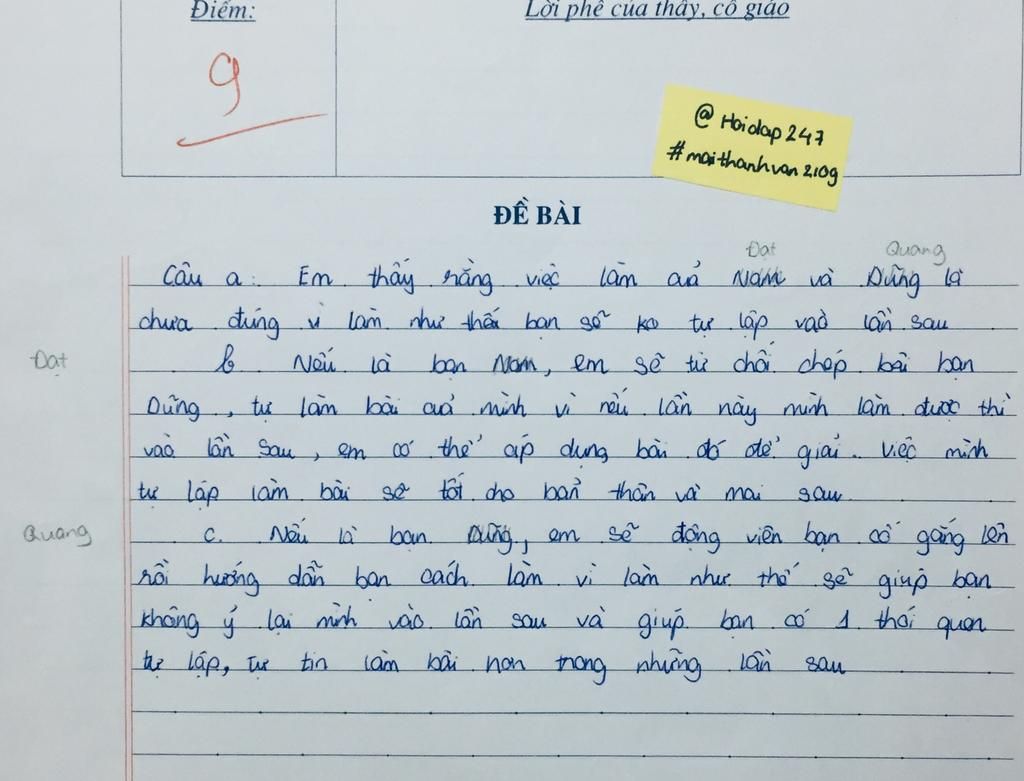 Điểm:
Lời phê của thầy, cô giáo
9
@Hoidap247
#maithanhvan210g
ĐỀ BÀI
Đạt Quang
Câu a: Em thấy rằng việc làm củả Nam và Dũng là
chưa đúng vì làm như thế bạn sẽ ko tự lập vào lần sau
Đạt
b. Nếu là bạn Nam, em sẽ từ chối chép bài bạn
Dũng, tự làm bài củả mình vì nếu lần này mình làm được thì
vào lần sau, em có thể áp dụng bài đó để giải. Việc mình
tự lập làm bài sẽ tốt cho bản thân và mai sau.
Quang
c. Nếu là bạn Dũng, em sẽ động viên bạn cố gắng lên
rồi hướng dẫn bạn cách làm vì làm như thế sẽ giúp bạn
không ý lại mình vào lần sau và giúp bạn có 1 thói quen
tự lập, tự tin làm bài hơn trong những lần sau